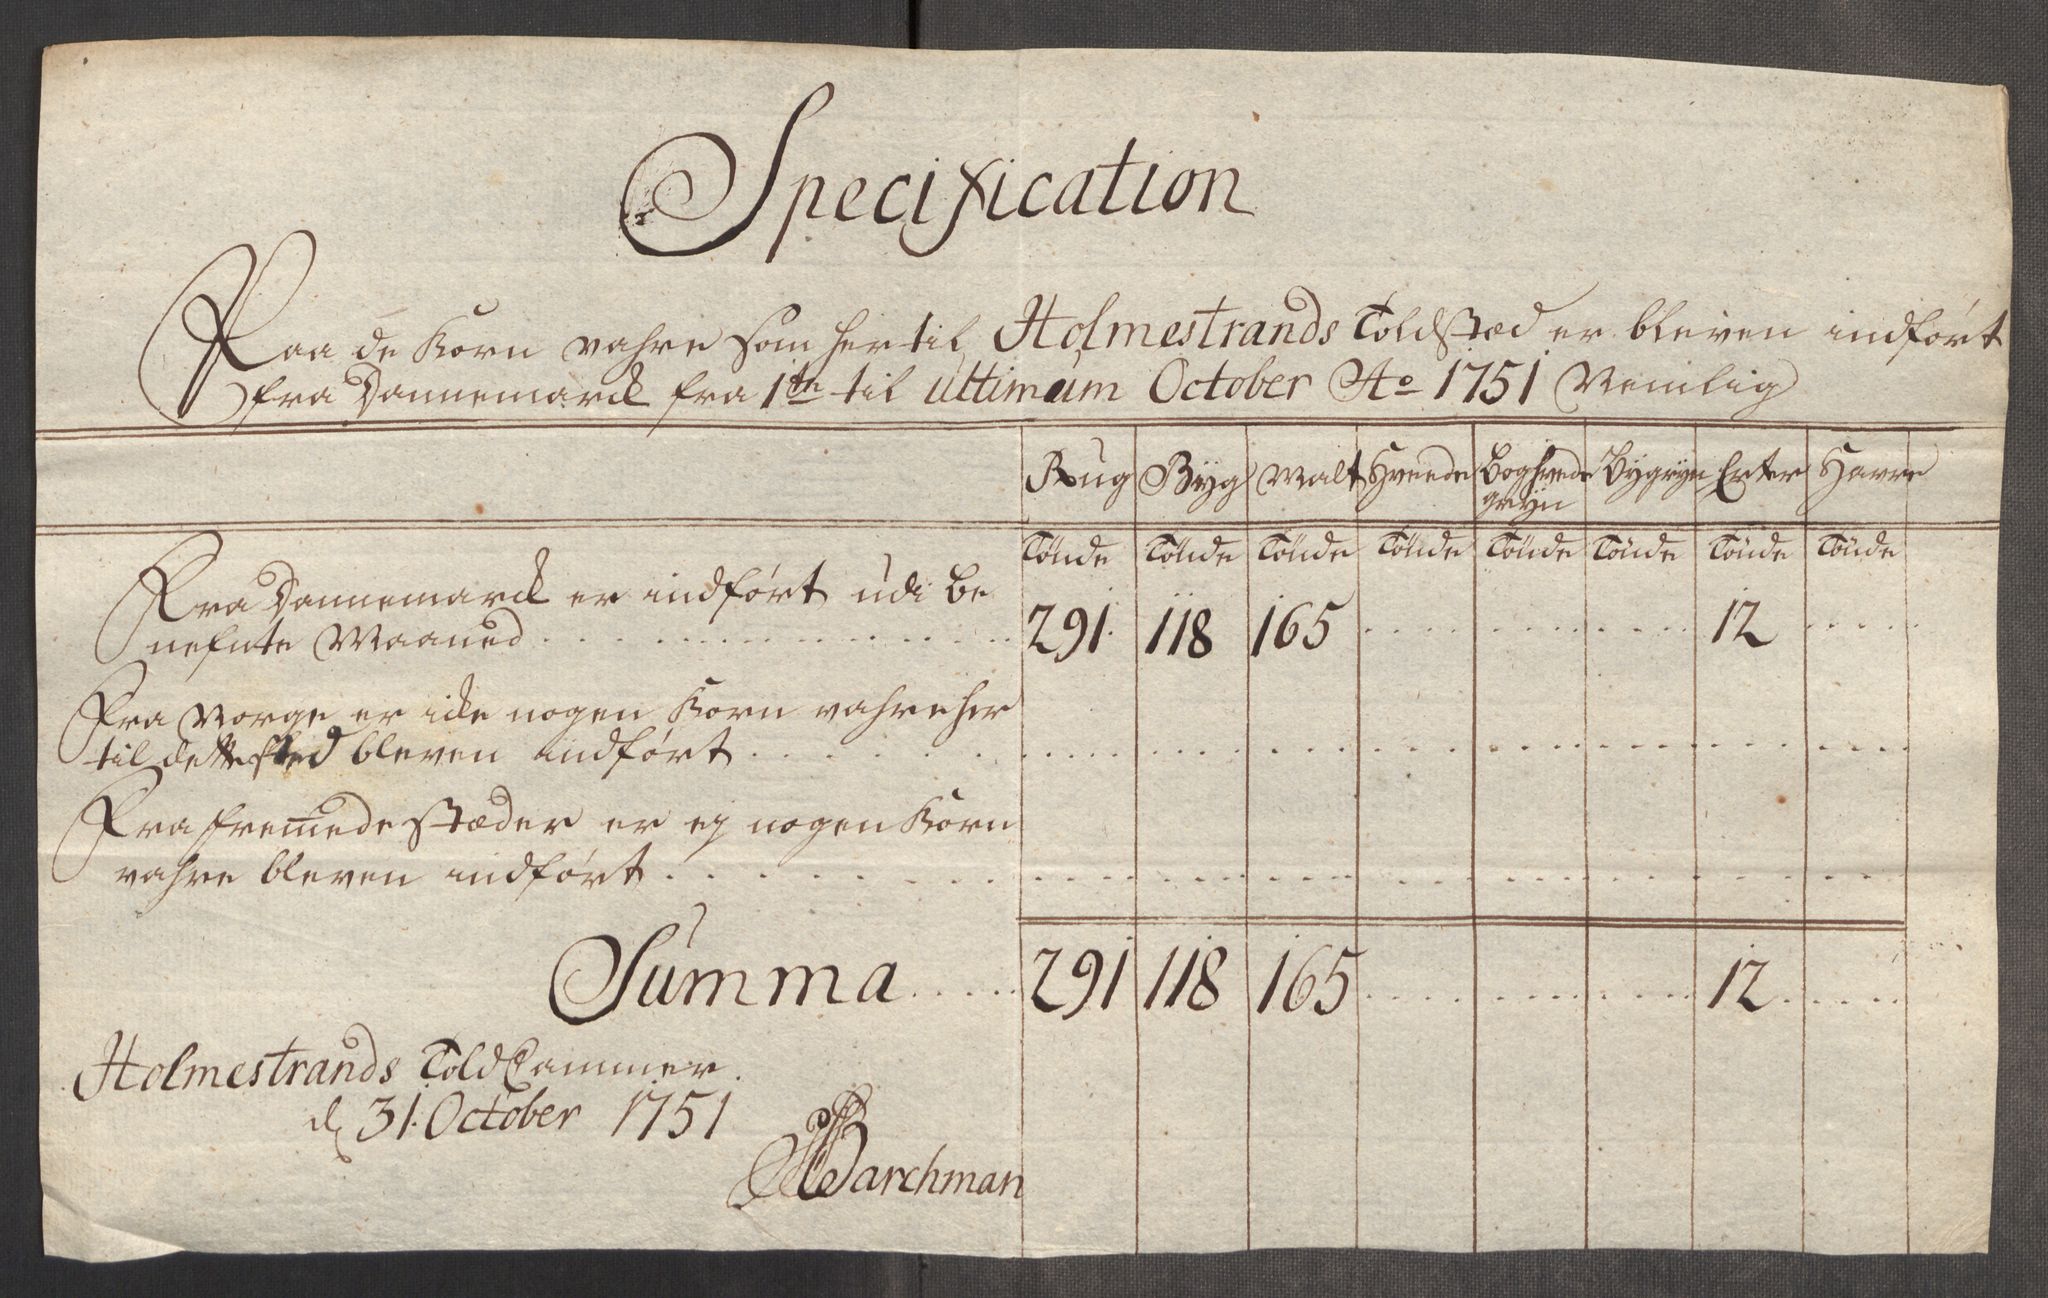 Specification
Paa de Korn vahre som her til Holmestrands Toldstæd er bleven indført
fra Dannemarck fra 1ten til ultimum October Ao 1751 Nemlig
Rug Byg Malt Hvede Boghvede Bygryn Erter Havre
gryn
Tønde Tønde Tønde Tønde Tønde Tønde Tønde Tønde
Fra Dannemarck er indført udi be
nefnte Maaned . . . 291. 118 165 . . . 12 . . .
Fra Norge er icke nogen Korn vahre her
til dette sted bleven indført . . .
Fra fremmede stæder er ej nogen Korn
vahre bleven indført . . .
Summa . . . 291 118 165 . . . 12 . . .
Holmestrands Told Cammer.
d 31. October 1751
Barchman